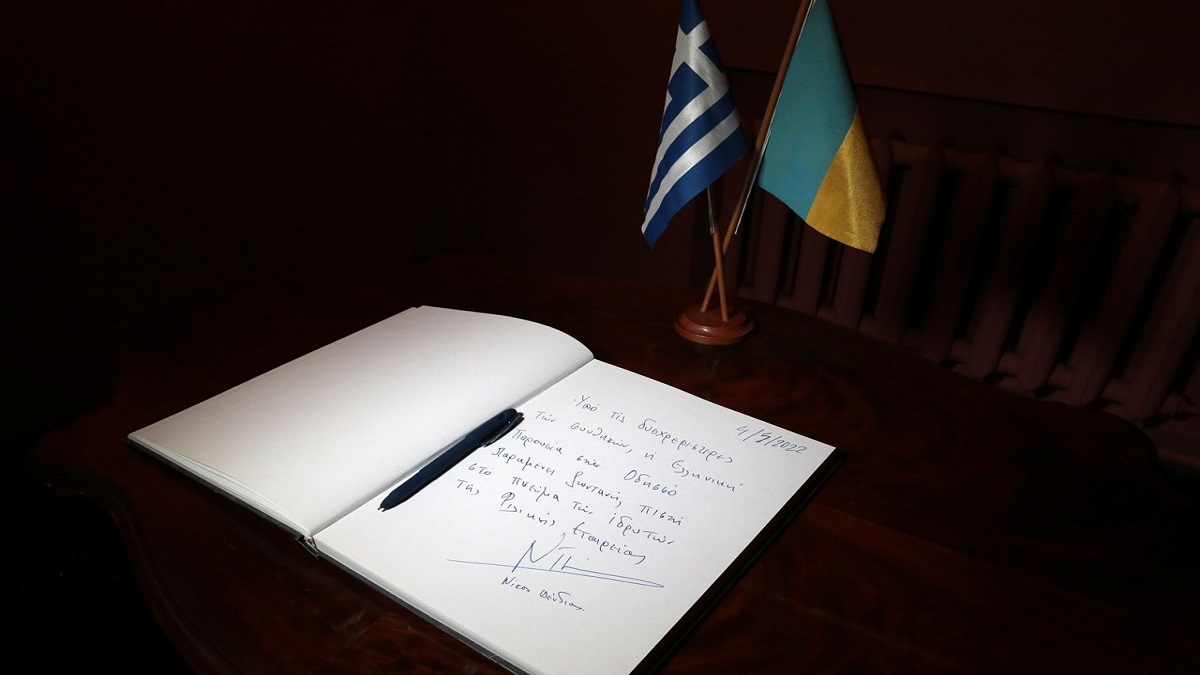 4/9/2022
Ὑπό τίς δυσχερέστερες
τῶν συνθηκῶν, ἡ Ελληνική
Παρουσία στήν Οδησσό
Παραμένει ζωντανή, πιστή
στό πνεῦμα τῶν ἱδρυτῶν
τῆς Φιλικῆς Εταιρείας
Νίκος Δένδιας